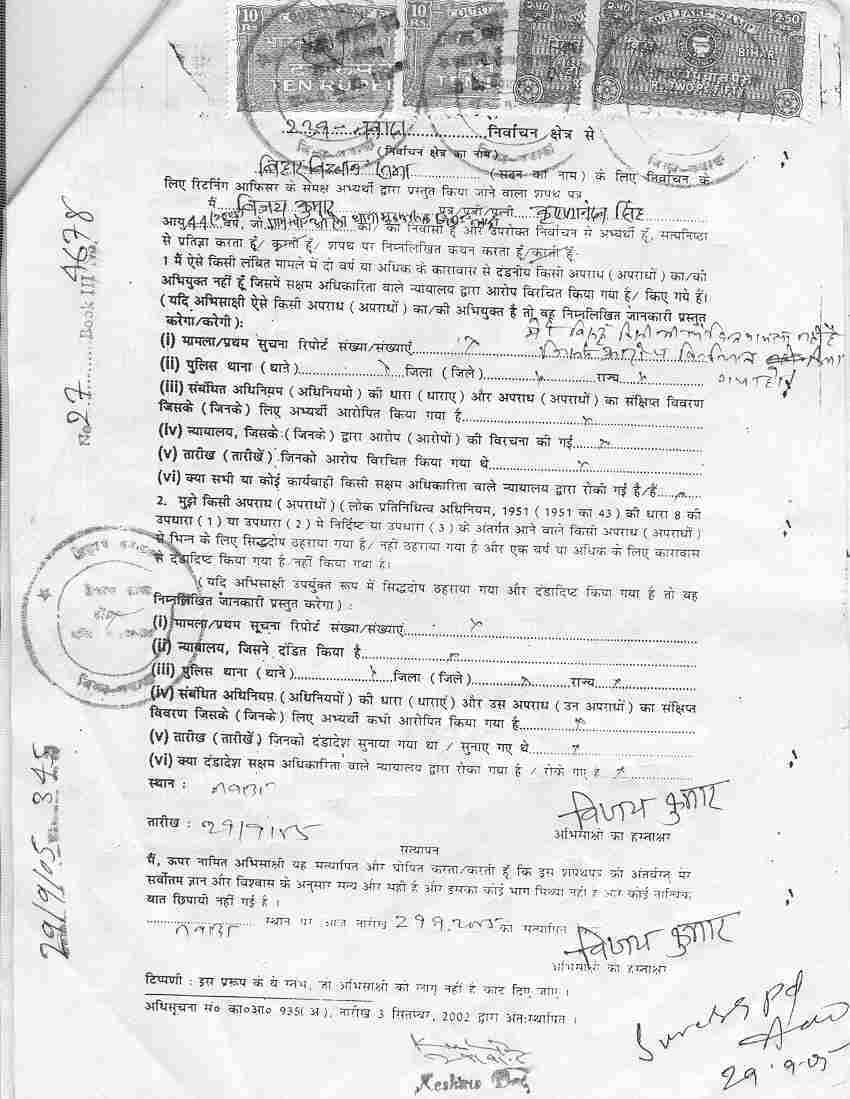 10 RS.
TEN RUPEES
10 RS.
COURT
2.50
WELFARE STAMP
2.50
BIHAR
229-नवादा निर्वाचन क्षेत्र से
(निर्वाचन क्षेत्र का नाम)
बिहार विधान सभा (सदन का नाम) के लिए निर्वाचन के
लिए रिटर्निंग आफिसर के समक्ष अभ्यर्थी द्वारा प्रस्तुत किया जाने वाला शपथ पत्र
मैं विजय कुमार पुत्र/पुत्री/पत्नी कृष्णनंदन सिंह
आयु 44 वर्ष, जो का/ की निवासी हूँ और उपरोक्त निर्वाचन से अभ्यर्थी हूँ, सत्यनिष्ठा
से प्रतिज्ञा करता हूँ/ करती हूँ/ शपथ पर निम्नलिखित कथन करता हूँ/करती हूँ:-
1 मैं ऐसे किसी लंबित मामले में दो वर्ष या अधिक के कारावास से दंडनीय किसी अपराध (अपराधों) का/की
अभियुक्त नहीं हूँ जिसमें सक्षम अधिकारिता वाले न्यायालय द्वारा आरोप विरचित किया गया है/ किए गये हैं।
(यदि अभिसाक्षी ऐसे किसी अपराध (अपराधों) का/की अभियुक्त है तो वह निम्नलिखित जानकारी प्रस्तुत
करेगा/करेगी):
(i) मामला/प्रथम सुचना रिपोर्ट संख्या/संख्याएं x
(ii) पुलिस थाना (थाने) x जिला (जिले) x राज्य x
(iii) संबंधित अधिनियम (अधिनियमो) की धारा (धाराए) और अपराध (अपराधों) का संक्षिप्त विवरण
जिसके (जिनके) लिए अभ्यर्थी आरोपित किया गया है x
(iv) न्यायालय, जिसके (जिनके) द्वारा आरोप (आरोपों) की विरचना की गई x
(v) तारीख (तारीखें) जिनको आरोप विरचित किया गया थे x
(vi) क्या सभी या कोई कार्यवाही किसी सक्षम अधिकारिता वाले न्यायालय द्वारा रोकी गई है/हैं x
2. मुझे किसी अपराध (अपराधों) (लोक प्रतिनिधित्व अधिनियम, 1951 (1951 का 43) की धारा 8 की
उपधारा (1) या उपधारा (2) मे निर्दिष्ट या उपधारा (3) के अंतर्गत आने वाले किसी अपराध (अपराधों)
से भिन्न के लिए सिद्धदोष ठहराया गया है/ नहीं ठहराया गया है और एक वर्ष या अधिक के लिए कारावास
से दंडादिष्ट किया गया है/नहीं किया गया है।
(यदि अभिसाक्षी उपर्युक्त रूप में सिद्धदोष ठहराया गया और दंडादिष्ट किया गया है तो वह
निम्नलिखित जानकारी प्रस्तुत करेगा) :
(i) मामला/प्रथम सूचना रिपोर्ट संख्या/संख्याएं x
(ii) न्यायालय, जिसने दंडित किया है x
(iii) पुलिस थाना (थाने) x जिला (जिले) x राज्य x
(iv) संबंधित अधिनियम (अधिनियमों) की धारा (धाराएं) और उस अपराध (उन अपराधों) का संक्षिप्त
विवरण जिसके (जिनके) लिए अभ्यर्थी कभी आरोपित किया गया है x
(v) तारीख (तारीखें) जिनको दंडादेश सुनाया गया था / सुनाए गए थे x
(vi) क्या दंडादेश सक्षम अधिकारिता वाले न्यायालय द्वारा रोका गया है / रोके गए है x
स्थान : नवादा
विजय कुमार
तारीख : 29/9/05
अभिसाक्षी का हस्ताक्षर
सत्यापन
मैं, ऊपर नामित अभिसाक्षी यह सत्यापित और घोषित करता/करती हूँ कि इस शपथपत्र की अंतर्वस्तु मेरे
सर्वोत्तम ज्ञान और विश्वास के अनुसार सत्य और सही है और इसका कोई भाग मिथ्या नहीं है और कोई तात्विक
बात छिपायी नहीं गई है ।
नवादा स्थान पर आज तारीख 29.9.2005 का सत्यापन
विजय कुमार
अभिसाक्षी का हस्ताक्षर
टिप्पणी : इस प्ररूप के वे स्तंभ, जो अभिसाक्षी को लागू नहीं है काट दिए जाएं ।
अधिसूचना सं० का०आ० 935(अ), तारीख 3 सितम्बर, 2002 द्वारा अंतःस्थापित ।
29.9.05
No 27 Book III 4678
29/9/05 345